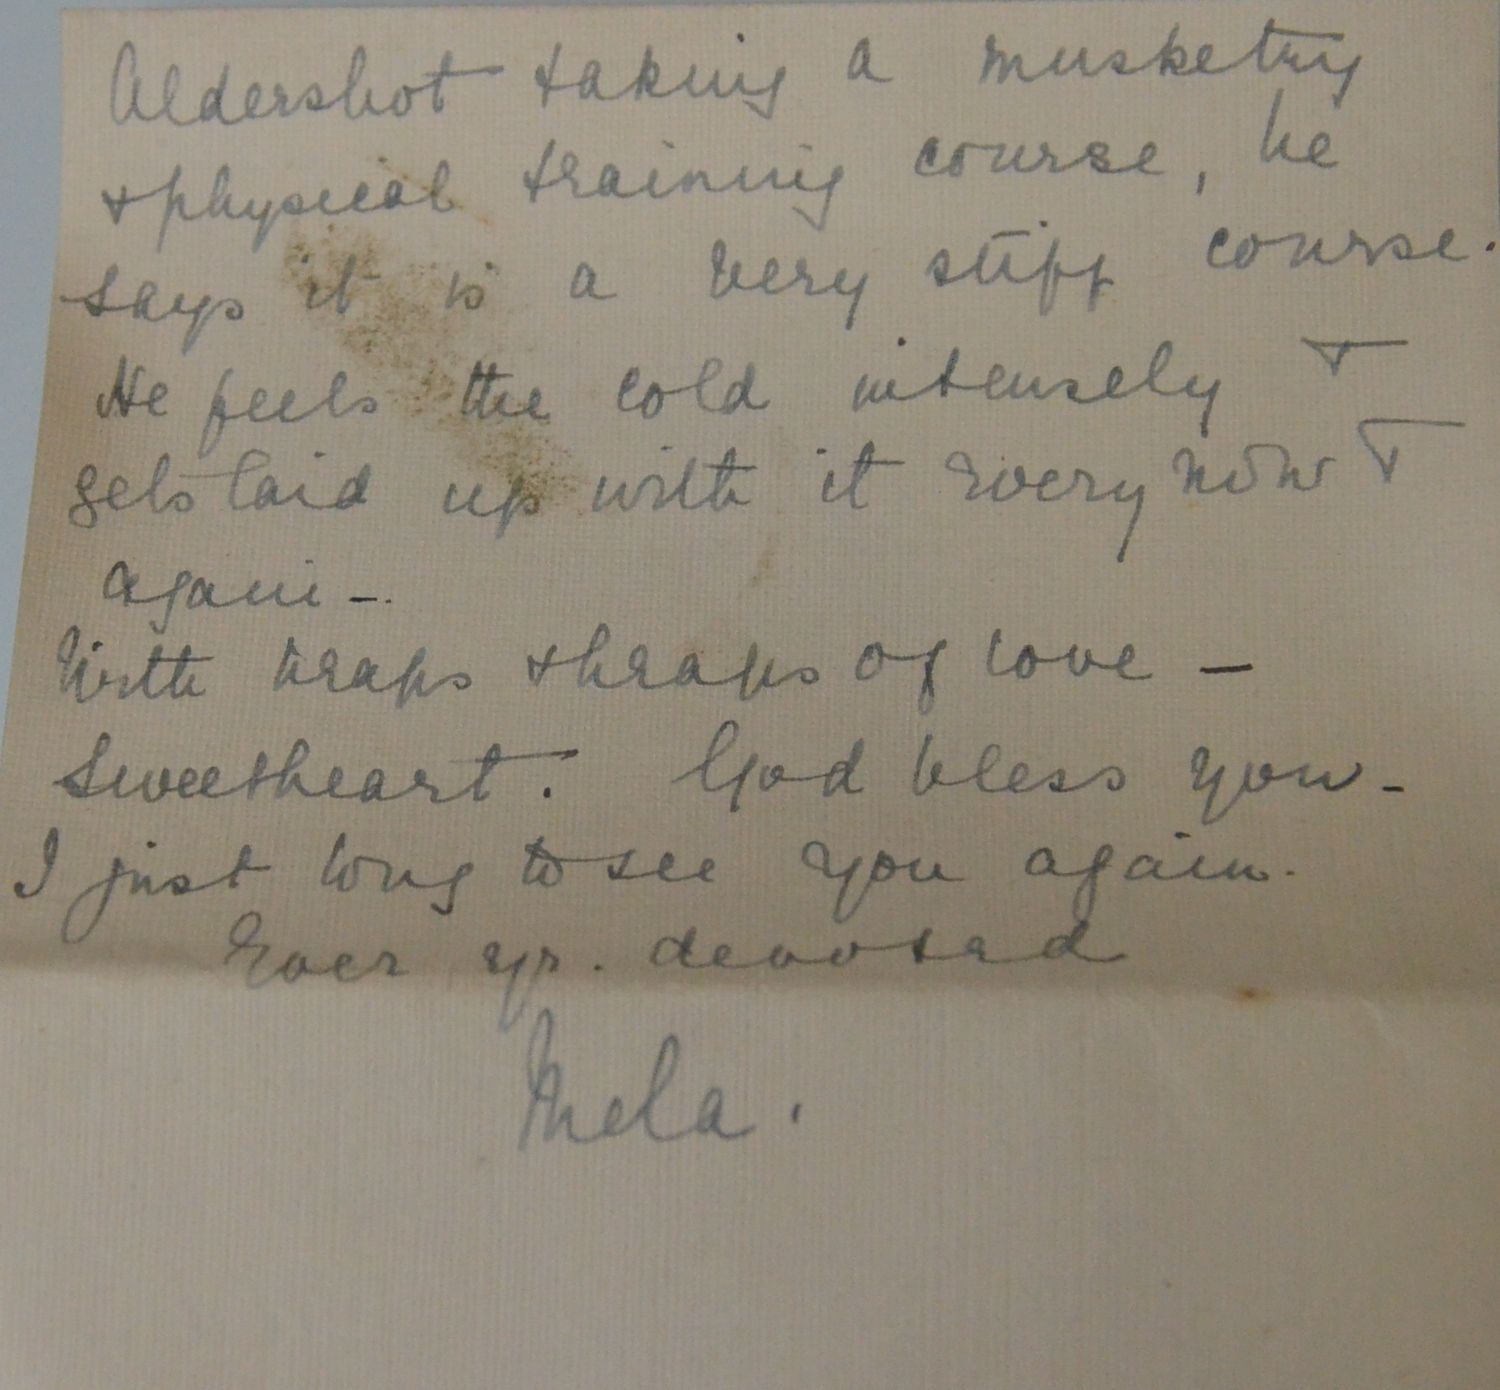 Aldershot taking a musketry
& physical training course, he
says it is a very stiff course.
He feels the cold intensely &
gets laid up with it every now &
again -.
With heaps & heaps of love -
Sweetheart. God bless you -
I just long to see you again.
Ever yr. devoted
Mela.